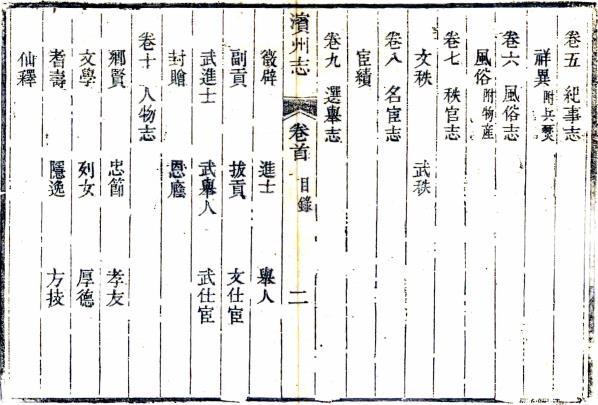 卷五 紀事志
祥異 附兵燹
卷六 風俗志
風俗 附物産
卷七 秩官志
文秩 武秩
卷八 名宦志
宦績
卷九 選舉志
濱州志 卷首 目錄 二
徵辟 進士 舉人
副貢 拔貢 文仕宦
武進士 武舉人 武仕宦
封贈 恩廕
卷十 人物志
鄉賢 忠節 孝友
文學 列女 厚德
耆壽 隱逸 方技
仙釋